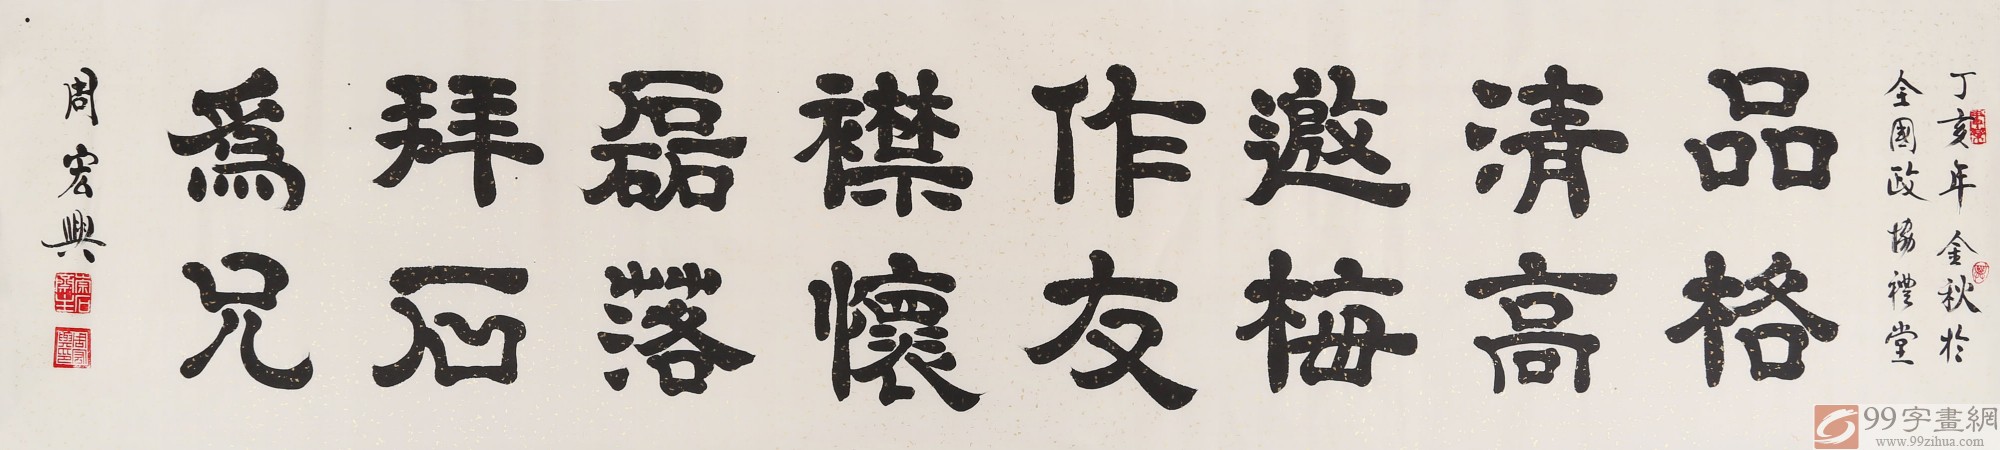 丁亥年金秋於
全國政協禮堂
品格
清高
邀梅
作友
襟懷
磊落
拜石
為兄
周宏興
99字畫網
www.99zihua.com